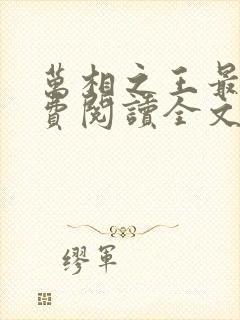 萬相之王最
費閱讀全文
繆軍